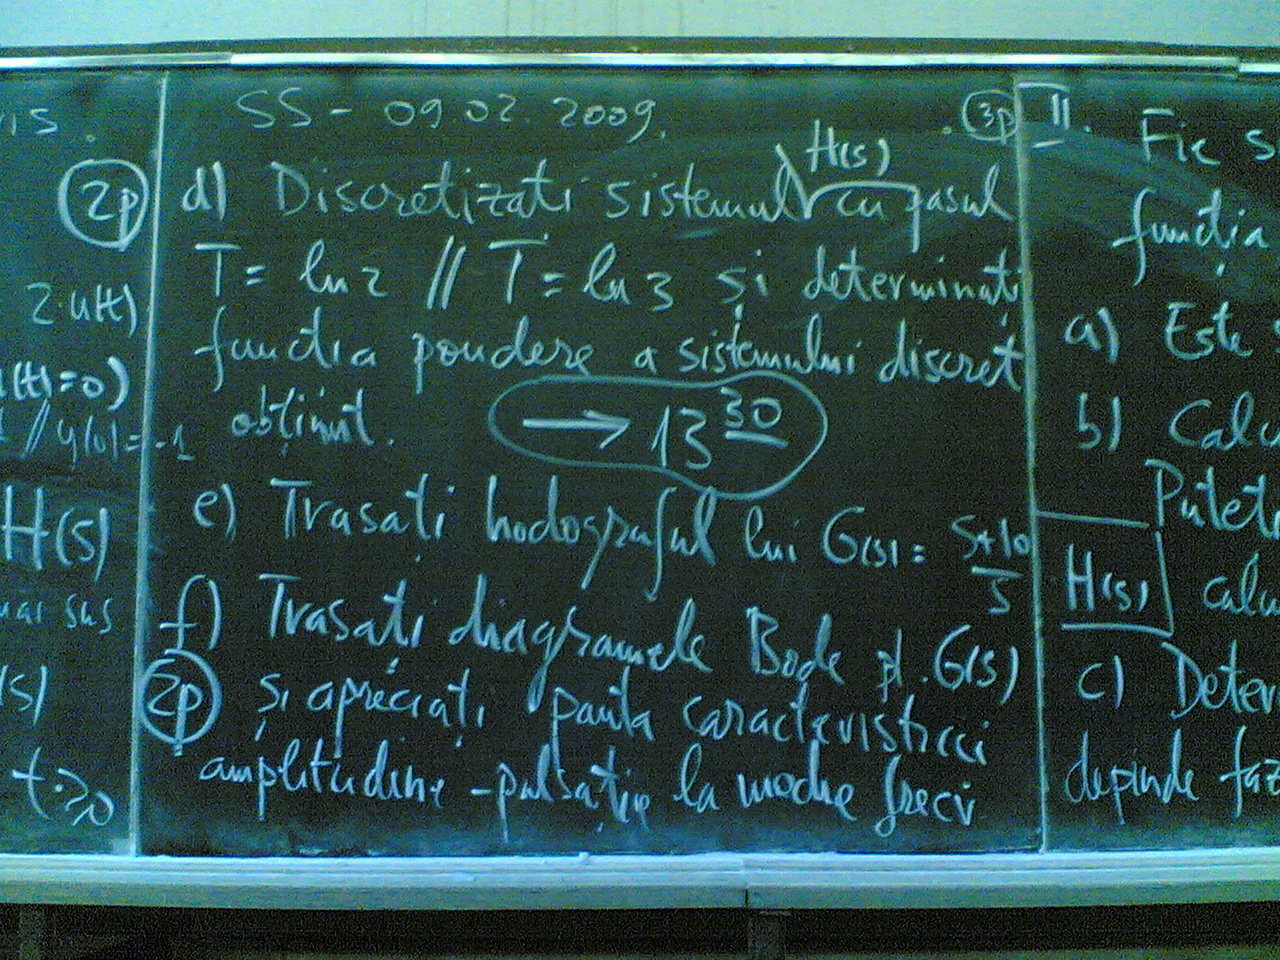 IS.
2p
2·u(t)
(t)=0)
// y(0)=-1
H(s)
mai sus
(s)
t≥0
SS - 09.02.2009.
d) Discretizati sistemul H(s) cu pasul
T = ln 2 // T = ln 3 și determinați
funcția pondere a sistemului discret
obținut.
→ 13 30
e) Trasați hodograful lui G(s) = s+10
s
f) Trasați diagramele Bode pt. G(s)
2p și apreciați panta caracteristicii
amplitudine - pulsație la
3p II. Fie s
funcția
a) Este
b) Calcu
Puteți
H(s) calcu
c) Deter
depinde faz